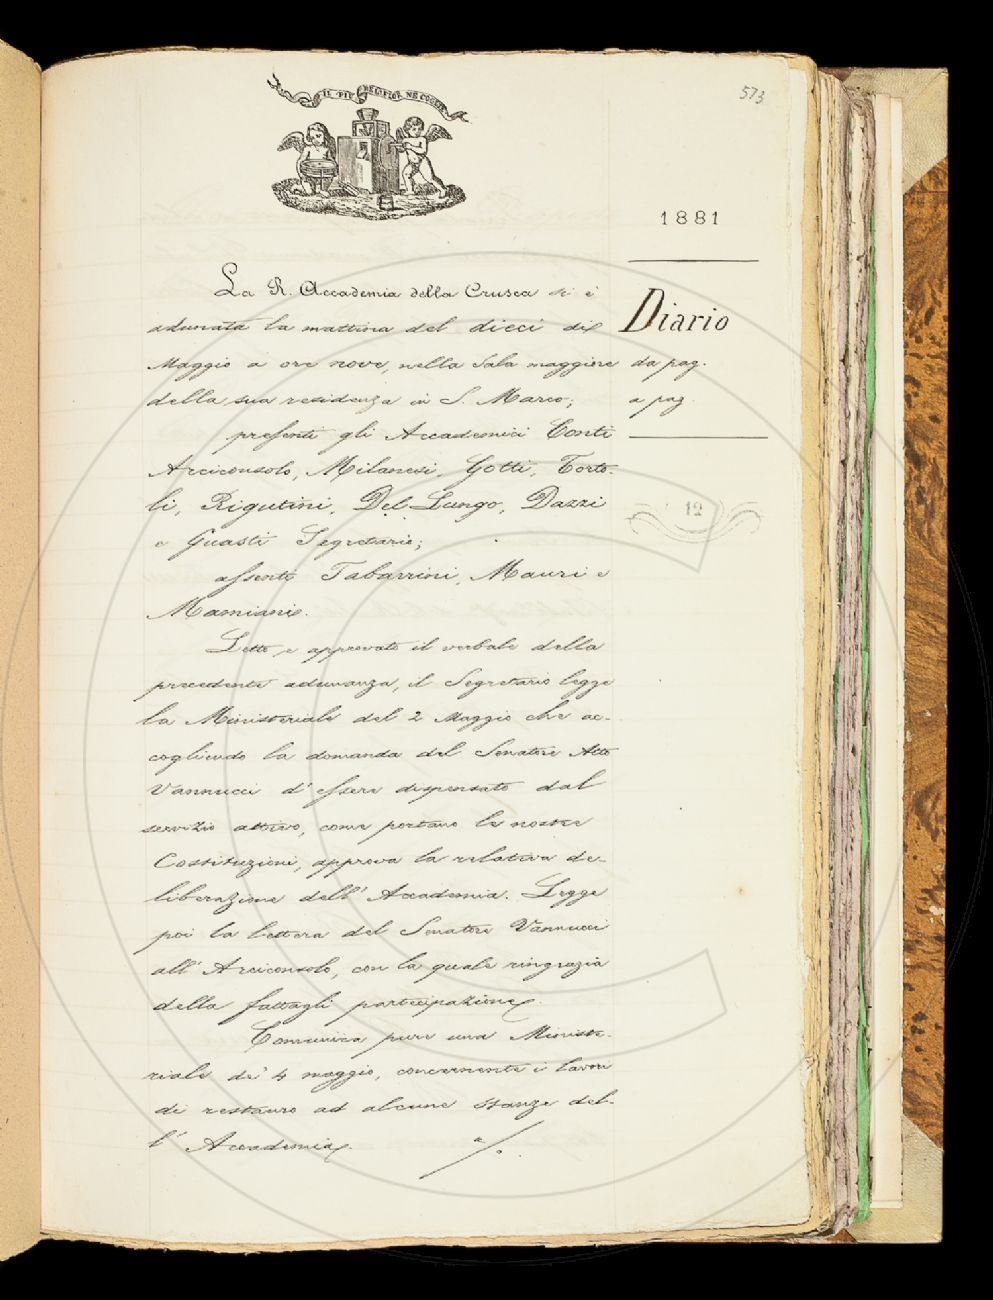 IL PIÙ BEL FIOR NE COGLIE
573
1881
Diario
da pag.
a pag.
12
La R. Accademia della Crusca si è
adunata la mattina del dieci di
Maggio a ore nove, nella Sala maggiore
della sua residenza in S. Marco;
presenti gli Accademici Conti
Arciconsolo, Milanesi, Gotti, Torto-
li, Rigutini, Del Lungo, Dazzi
e Guasti Segretario;
assenti Tabarrini, Mauri e
Mamiani.
Letto e approvato il verbale della
precedente adunanza, il Segretario legge
la Ministeriale del 2 Maggio che ac-
cogliendo la domanda del Senatore Atto
Vannucci d'essere dispensato dal
servizio attivo, come portano le nostre
Costituzioni, approva la relativa de-
liberazione dell'Accademia. Legge
poi la lettera del Senatore Vannucci
all'Arciconsolo, con la quale ringrazia
della fattagli partecipazione.
Comunica pure una Ministe-
riale de' 4 maggio, concernente i lavori
di restauro ad alcune stanze del-
l'Accademia.